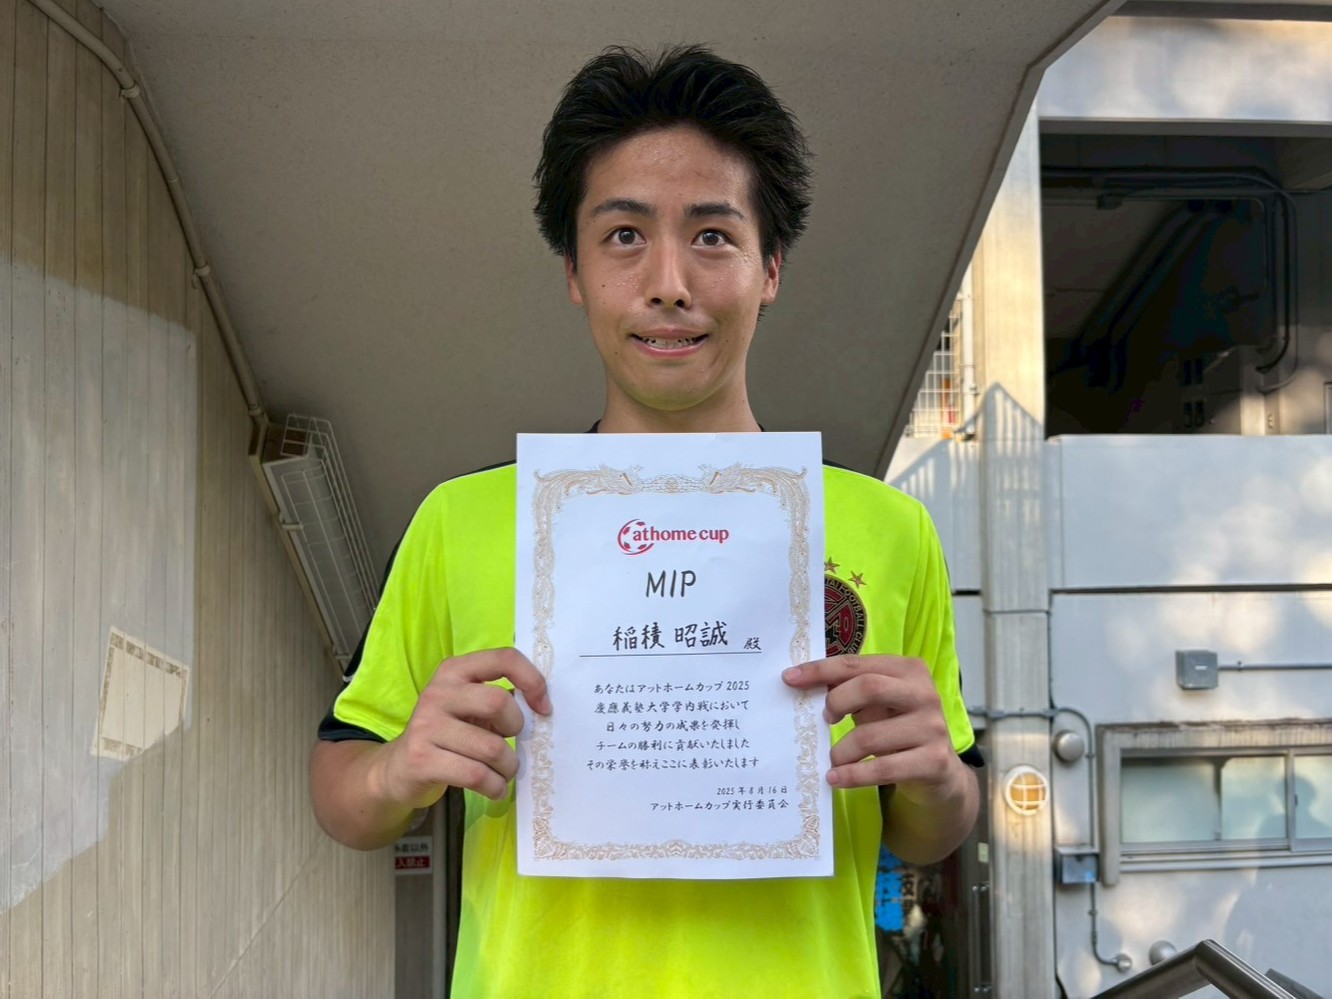 athome cup
MIP
稲積 昭誠 殿
あなたはアットホームカップ2025
慶應義塾大学学内戦において
日々の努力の成果を発揮し
チームの勝利に貢献いたしました
その栄誉を称えここに表彰いたします
2025年8月16日
アットホームカップ実行委員会
FOOTBALL CLUB
者以外
入禁止